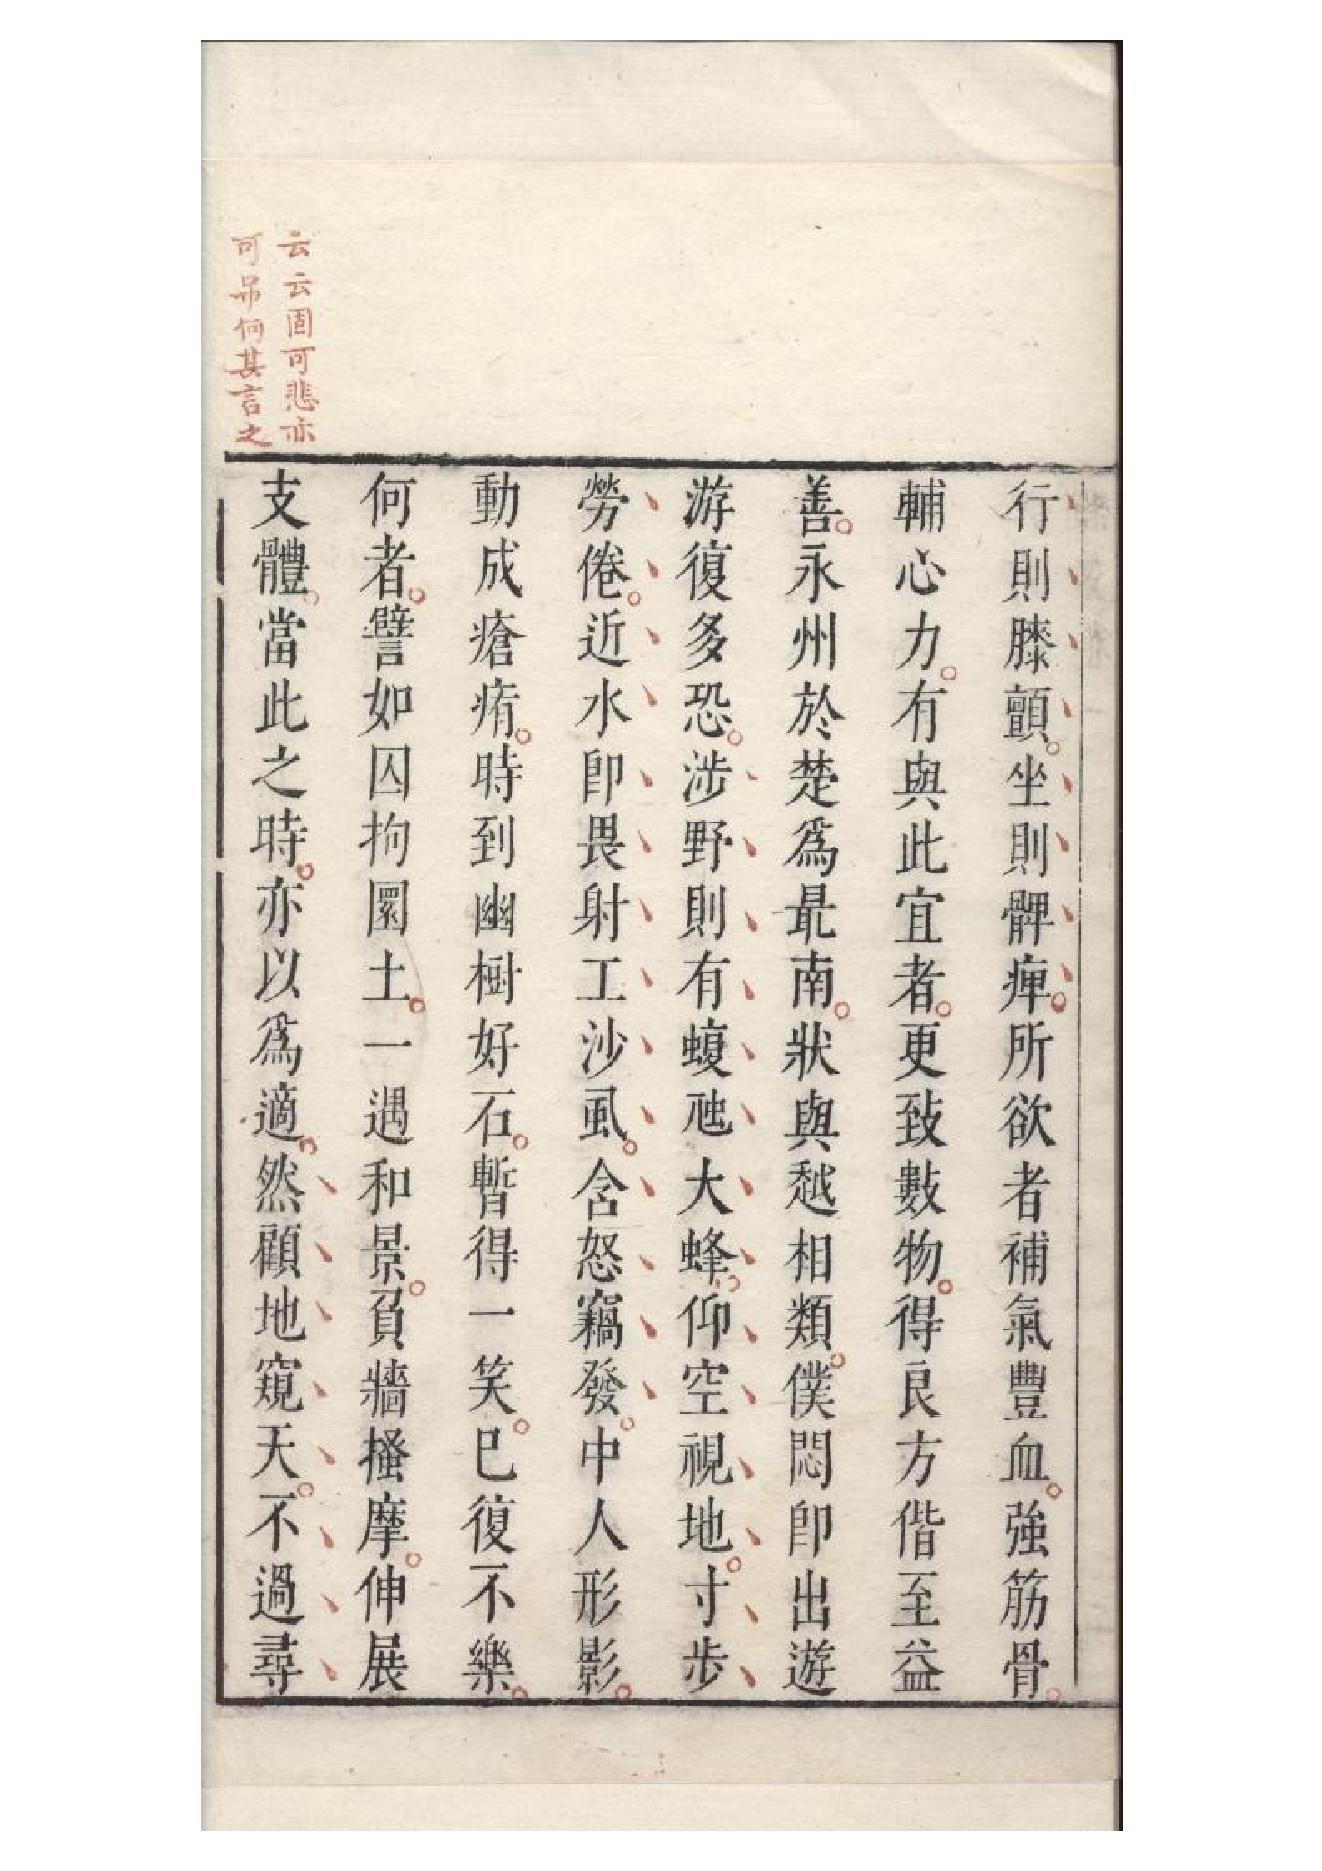 云云固可悲亦
可吊何其言之
行則膝顫坐則髀痺所欲者補氣豐血強筋骨
輔心力有與此宜者更致數物得良方偕至益
善永州於楚爲最南狀與越相類僕悶卽出遊
游復多恐涉野則有蝮虺大蜂仰空視地寸步
勞倦近水卽畏射工沙虱含怒竊發中人形影
動成瘡痏時到幽樹好石暫得一笑已復不樂
何者譬如囚拘圜土一遇和景負牆搔摩伸展
支體當此之時亦以爲適然顧地窺天不過尋